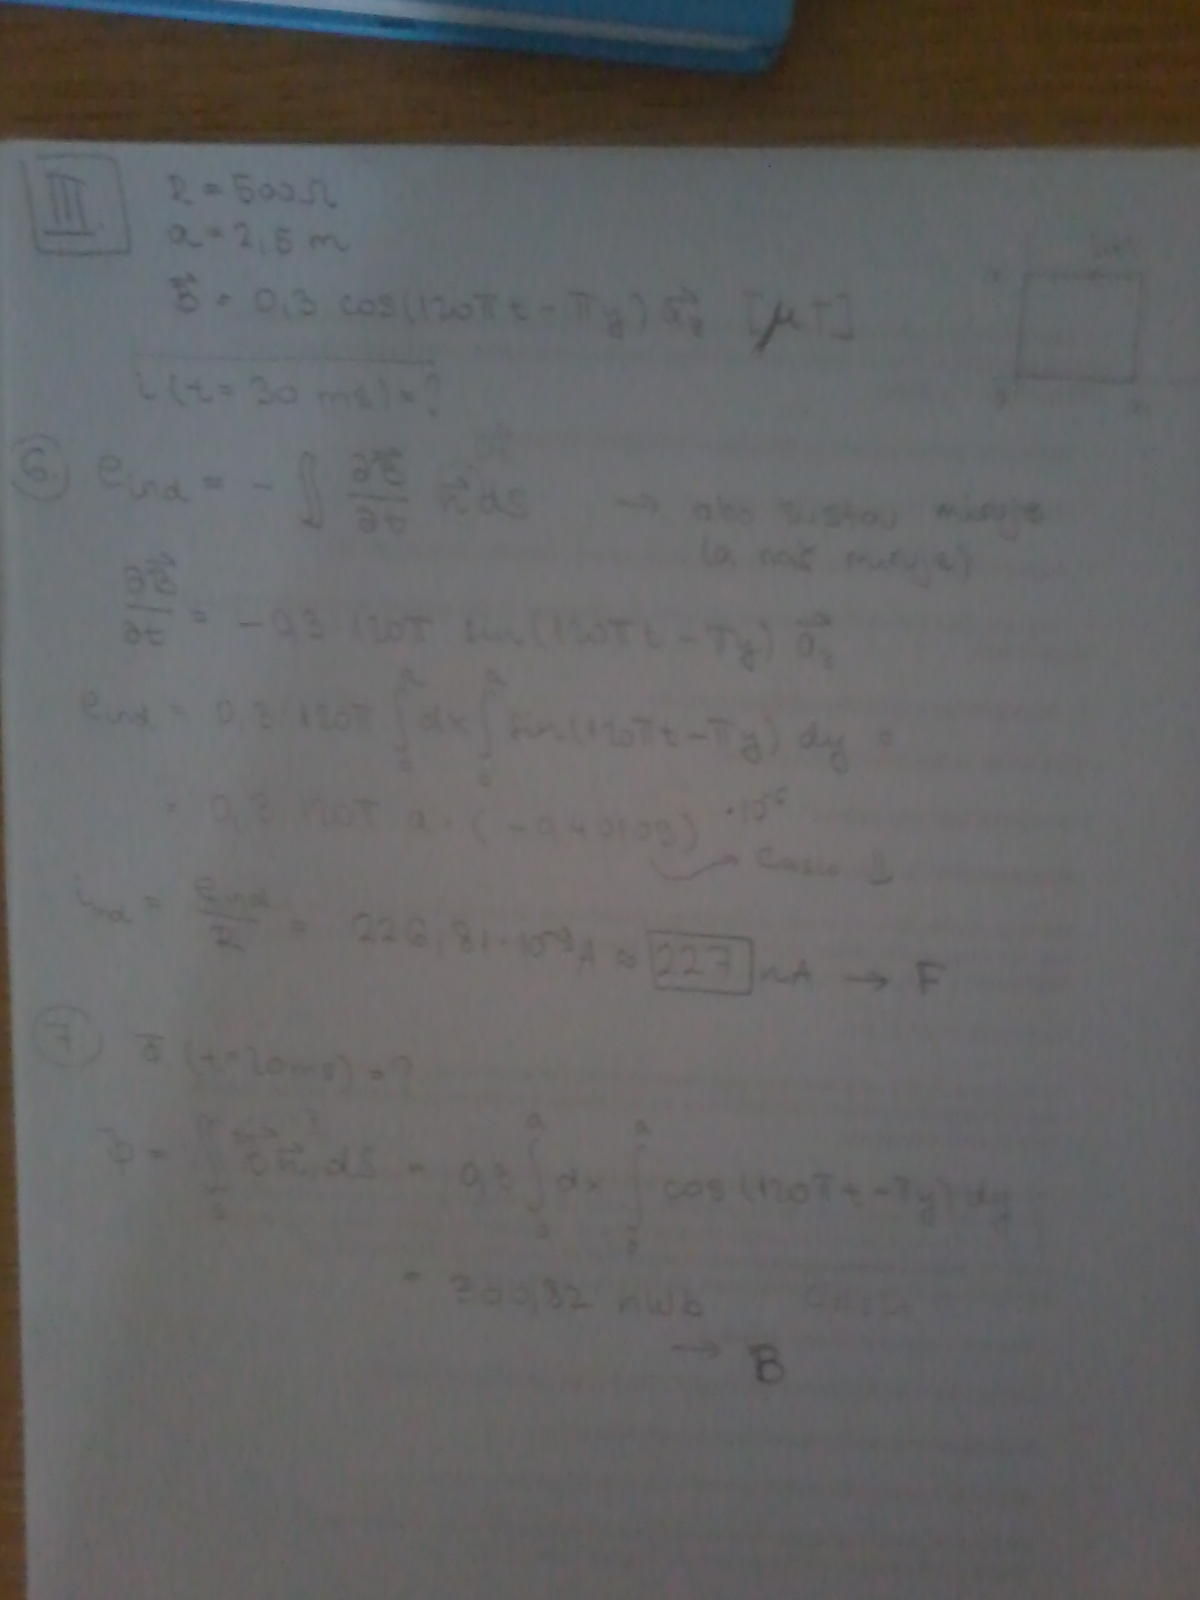 III.
R = 500 Ω
a = 2,5 m
B⃗ = 0,3 cos(120πt - πy) a⃗z [μT]
i (t = 30 ms) = ?
6. e ind = - ∫ ∂B⃗/∂t n⃗ dS → ako sustav miruje
(a naš miruje)
∂B⃗/∂t = -0,3 120π sin(120πt - πy) a⃗z
e ind = 0,3 120π ∫₀ᵃ dx ∫₀ᵃ sin(120πt - πy) dy =
= 0,3 120π a · ( ) · 10⁻⁶
Casio
i ind = e ind / R = 226,81 · 10⁻⁹ A ≈ 227 nA → F
7. Φ (t = 20 ms) = ?
Φ = ∫ B⃗ n⃗ dS = 0,3 ∫₀ᵃ dx ∫₀ᵃ cos(120πt - πy) dy
= nWb Casio
→ B